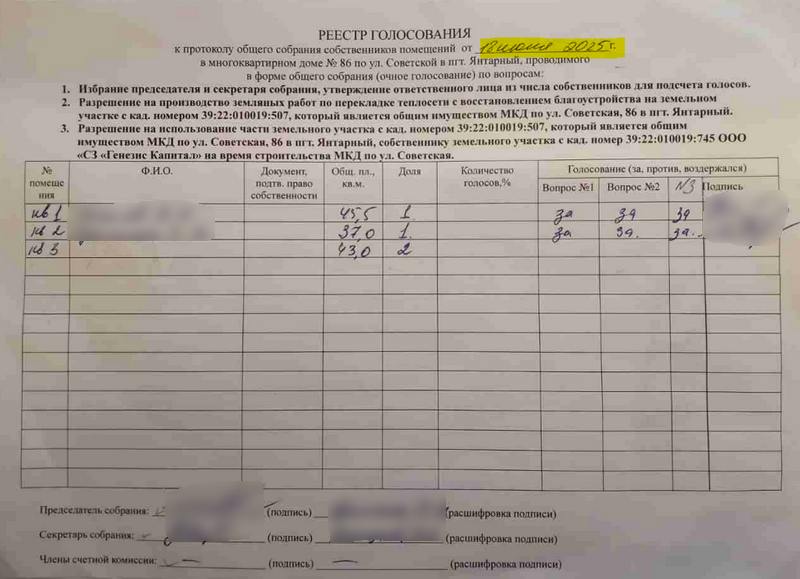 РЕЕСТР ГОЛОСОВАНИЯ
к протоколу общего собрания собственников помещений от 18 июня 2025 г.
в многоквартирном доме № 86 по ул. Советской в пгт. Янтарный, проводимого
в форме общего собрания (очное голосование) по вопросам:
1. Избрание председателя и секретаря собрания, утверждение ответственного лица из числа собственников для подсчета голосов.
2. Разрешение на производство земляных работ по перекладке теплосети с восстановлением благоустройства на земельном
участке с кад. номером 39:22:010019:507, который является общим имуществом МКД по ул. Советская, 86 в пгт. Янтарный.
3. Разрешение на использование части земельного участка с кад. номером 39:22:010019:507, который является общим
имуществом МКД по ул. Советская, 86 в пгт. Янтарный, собственнику земельного участка с кад. номер 39:22:010019:745 ООО
«СЗ «Генезис Капитал» на время строительства МКД по ул. Советская.
№ помеще ния Ф.И.О. Документ, подтв. право собственности Общ. пл., кв.м. Доля Количество голосов,% Голосование (за, против, воздержался)
Вопрос №1 Вопрос №2 №3 Подпись
кв 1 45,5 1 за за за
кв 2 37,0 1 за за. за.
кв 3 43,0 2
Председатель собрания: (подпись) (расшифровка подписи)
Секретарь собрания: (подпись) (расшифровка подписи)
Члены счетной комиссии: — (подпись) — (расшифровка подписи)